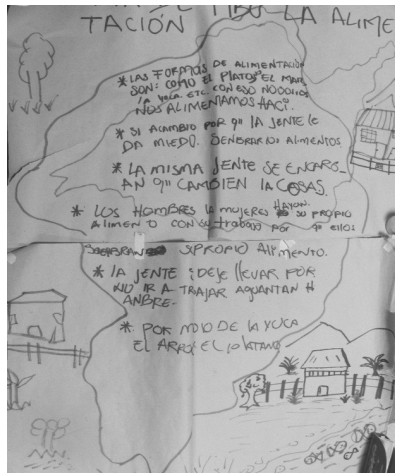 LA ALIME
TACIÓN
* LAS FORMAS DE ALIMENTACION
SON: COMO EL PLATOS EL MAR
LA YUCA. ETC. CON ESO NOCOTROS
NOS ALIMENTAMOS HACI.
* SI ACAMBIO POR QU LA JENTE LE
DA MIEDO. SENBRAR LOS ALIMENTOS
* LA MISMA JENTE SE ENCARG-
AN QU CAMBIEN LA COSAS.
* LOS HOMBRES LA MUJERES HAYAN SU PROPIO
ALIMENTO CON SU TRABAJO POR QU ELLOS
SIEMBRAN SU PROPIO ALIMENTO.
* LA JENTE DEJE LLEVAR POR
NO IR A TRAJAR AQUANTAN H
ANBRE-
* POR MDIO DE LA YUCA
EL ARROS EL PLATANO